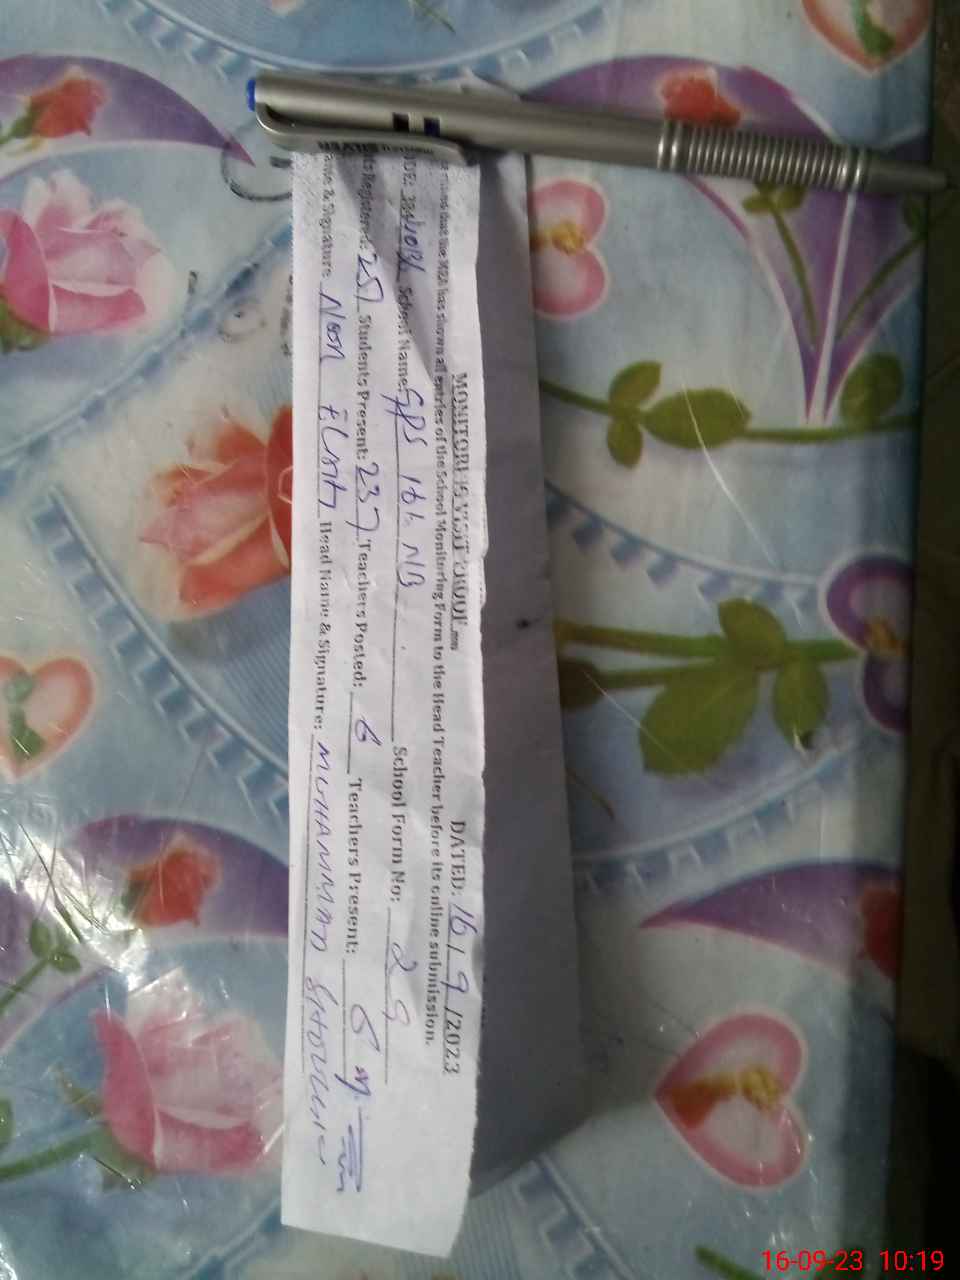 MONITORING VISIT PROOF DATED: 16/9/2023
that the MEA has shown all entries of the School Monitoring Form to the Head Teacher before its online submission.
School Name: GPS 161. NB School Form No: 29
Registered: 251 Students Present: 237 Teachers Posted: 6 Teachers Present: 6
Name & Signature Head Name & Signature: MUHAMMAD
16-09-23 10:19